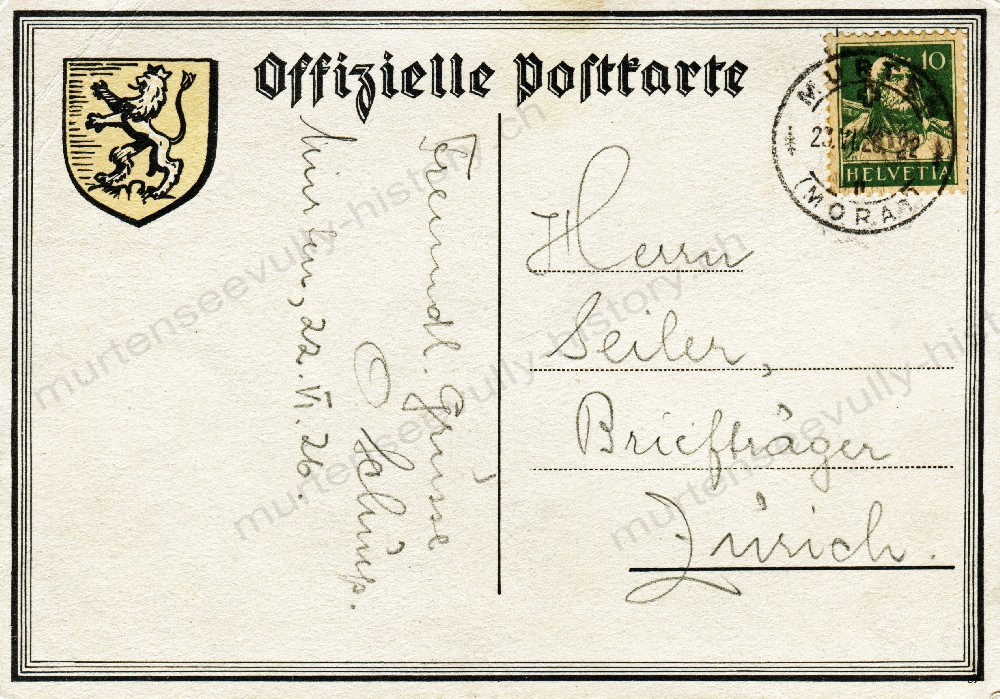 Offizielle Postkarte
MURTEN
23.VI.26-22
(MORAT)
10
HELVETIA
Murten, 22.VI.26.
Freundl. Grüsse
O
Herrn
Seiler,
Briefträger
Zürich.
murtenseevully-history.ch
murtenseevully-history.ch
murtenseevully-history.ch